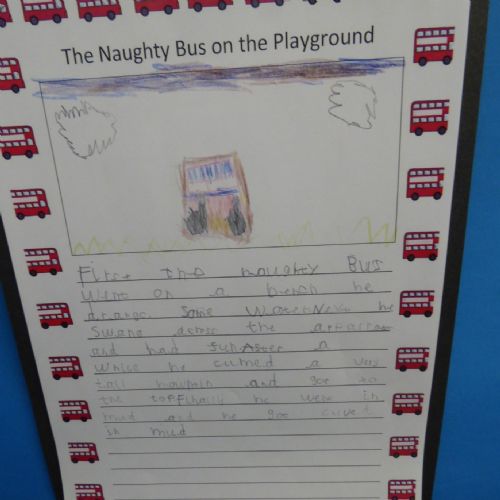 The Naughty Bus on the Playground
First the naughty Bus
went on a bench he
drange some water Next he
Swang across the
and had fun After a
while he climed a very
tall mountain and got to
the top Finally he went in
mud and he got coverd
in mud